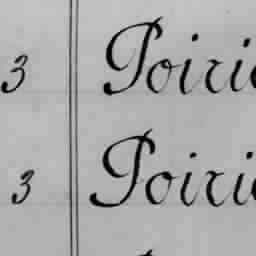 3 Poirie
3 Poirie